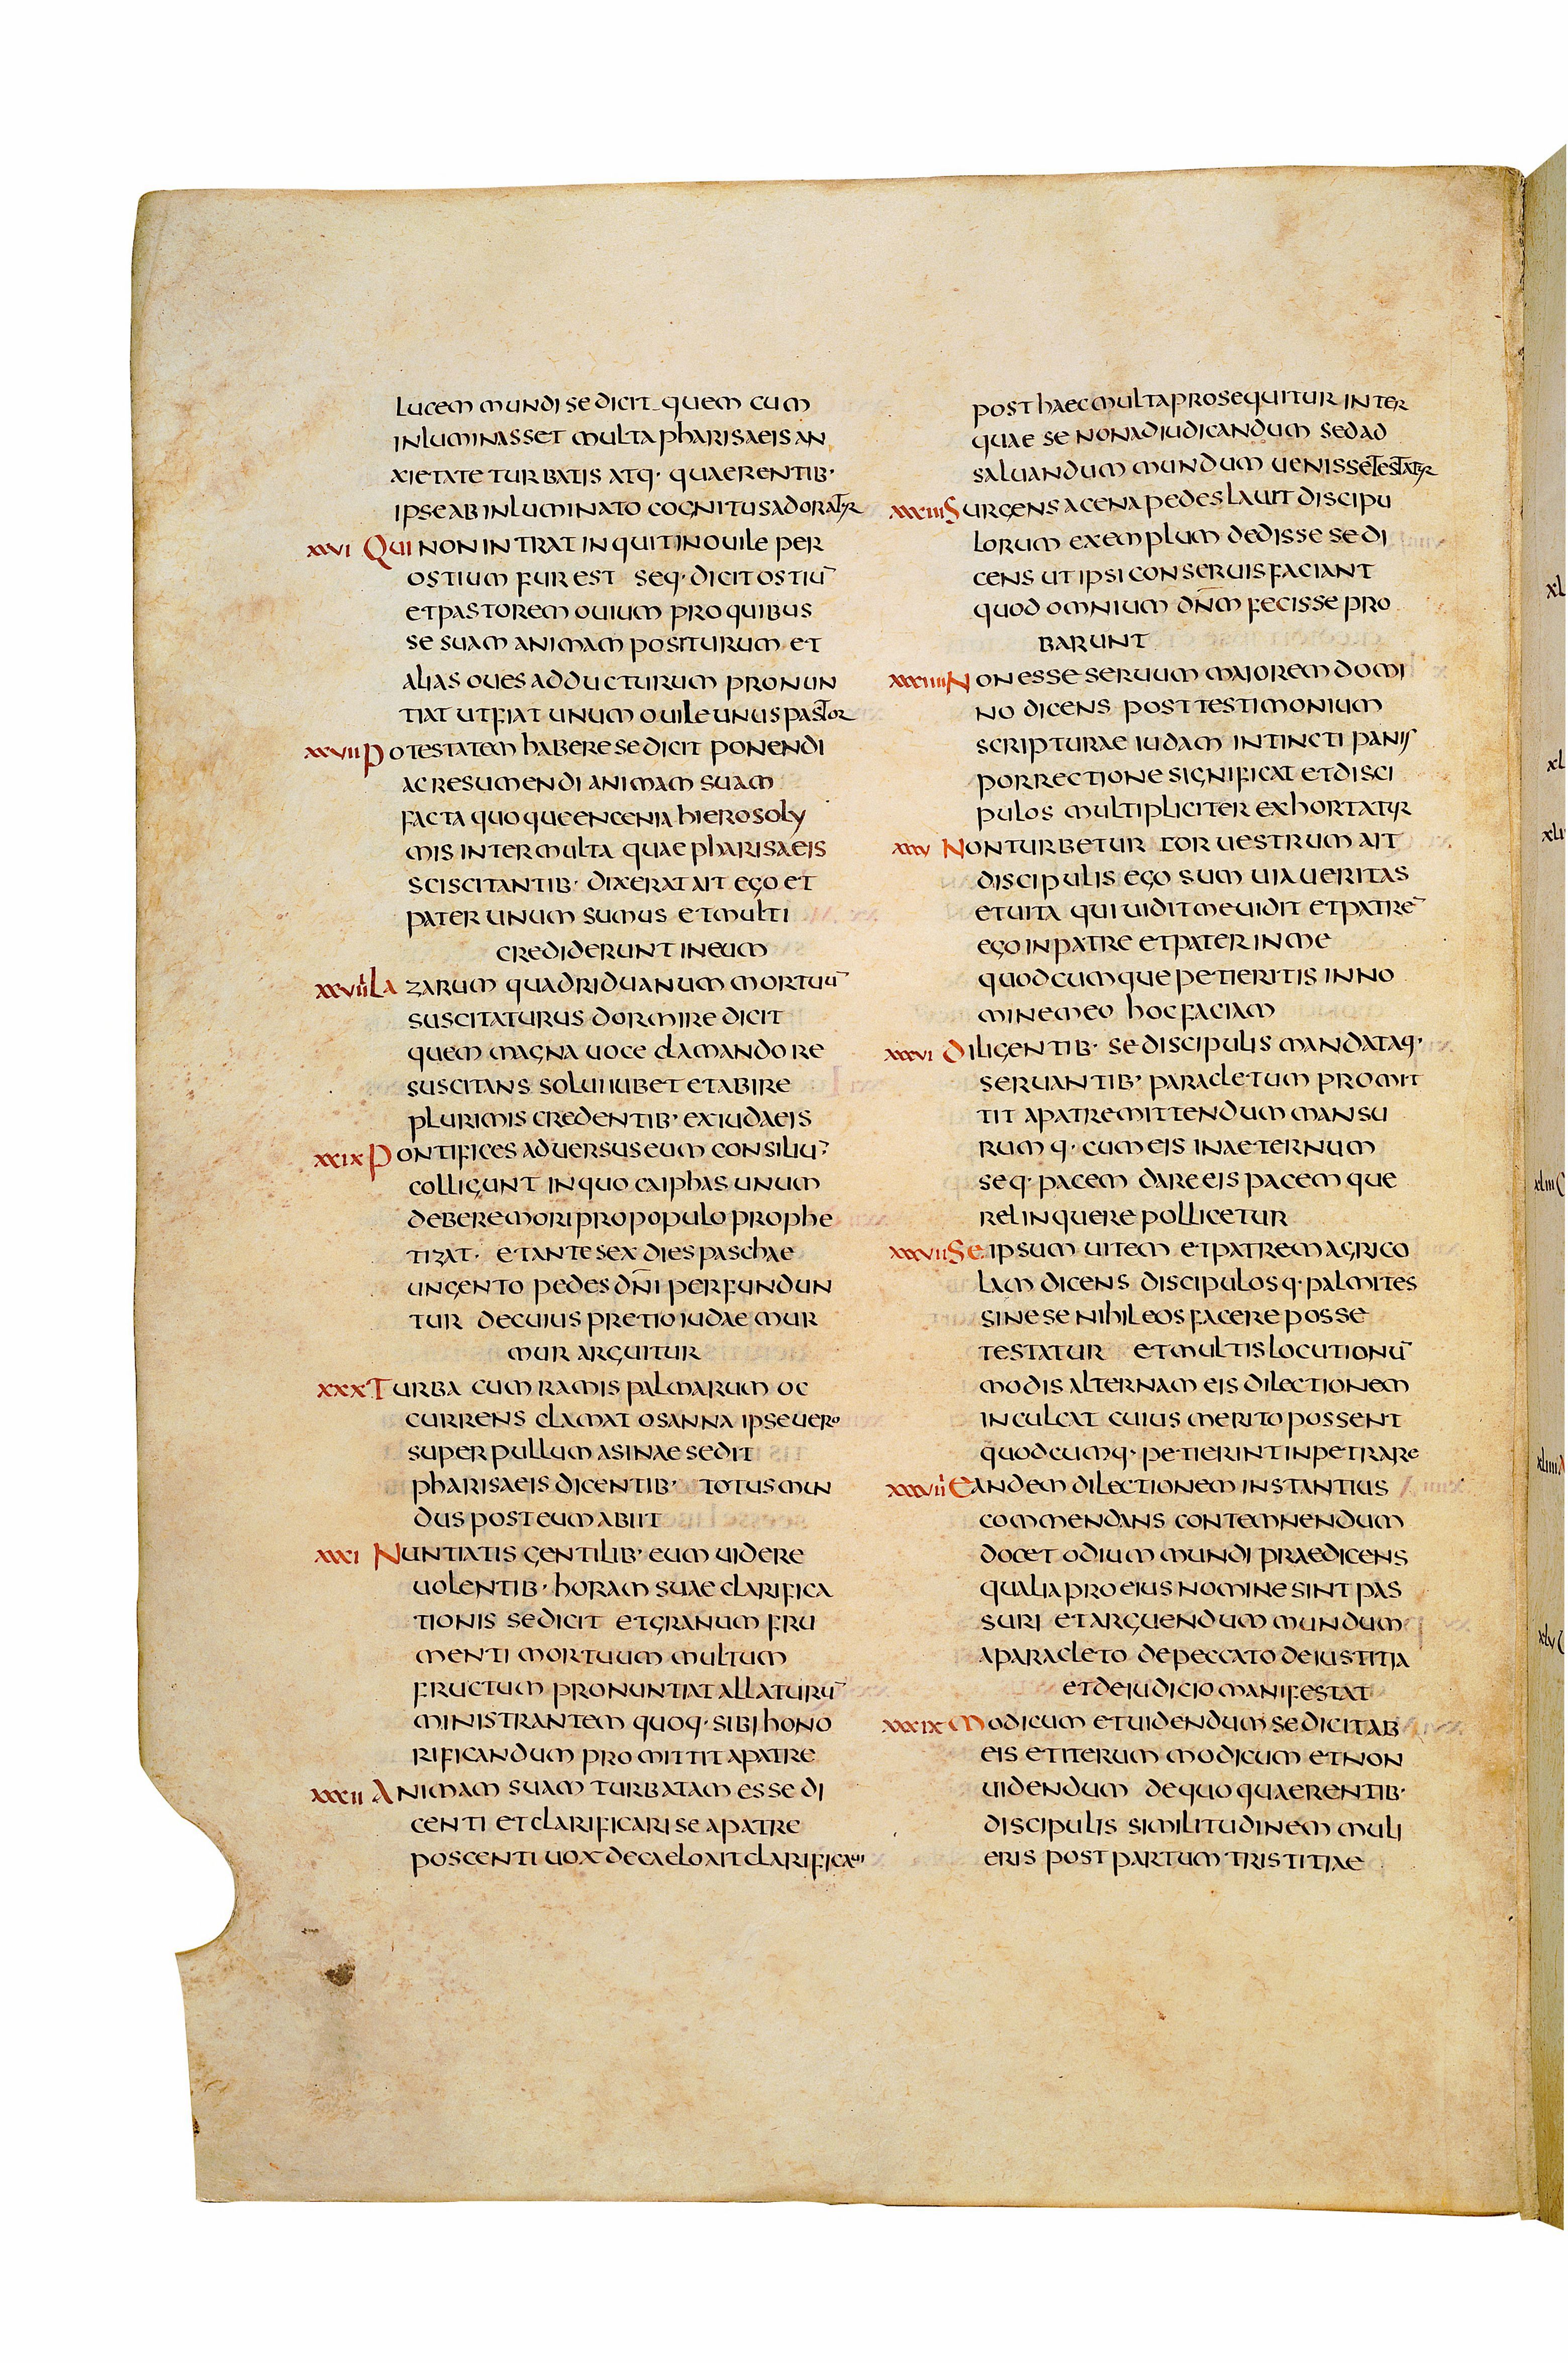 lucem mundi se dicit quem cum
inluminasset multa pharisaeis an
xietate turbatis atq· quaerentib·
ipse ab inluminato cognitus adoratur
xxvi Qui non intrat inquit in ouile per
ostium fur est seq· dicit ostiū
et pastorem ouium pro quibus
se suam animam positurum et
alias oues adducturum pronun
tiat ut fiat unum ouile unus pastor
xxvii Potestatem habere se dicit ponendi
ac resumendi animam suam
facta quoque encenia hierosoly
mis inter multa quae pharisaeis
sciscitantib· dixerat ait ego et
pater unum sumus et multi
crediderunt in eum
xxviii Lazarum quadriduanum mortuū
suscitaturus dormire dicit
quem magna uoce clamando re
suscitans solui iubet et abire
plurimis credentib· ex iudaeis
xxix Pontifices aduersus eum consiliū
colligunt in quo caiphas unum
debere mori pro populo prophe
tizat· et ante sex dies paschae
ungento pedes dn̄i perfundun
tur de cuius pretio iudae mur
mur arguitur
xxx Turba cum ramis palmarum oc
currens clamat osanna ipse uero
super pullum asinae sedit
pharisaeis dicentib· totus mun
dus post eum abiit
xxxi Nuntiatis gentilib· eum uidere
uolentib· horam suae clarifica
tionis se dicit et granum fru
menti mortuum multum
fructum pronuntiat allaturū
ministrantem quoq· sibi hono
rificandum promittit a patre
xxxii Animam suam turbatam esse di
centi et clarificari se a patre
poscenti uox de caelo ait clarificaui
post haec multa prosequitur inter
quae se non ad iudicandum sed ad
saluandum mundum uenisse testatur
xxxiii Surgens a cena pedes lauit discipu
lorum exemplum dedisse se di
cens ut ipsi conseruis faciant
quod omnium dn̄m fecisse pro
barunt
xxxiiii Non esse seruum maiorem domi
no dicens post testimonium
scripturae iudam intincti panis
porrectione significat et disci
pulos multipliciter exhortatur
xxxv Non turbetur cor uestrum ait
discipulis ego sum uia ueritas
et uita qui uidit me uidit et patrē
ego in patre et pater in me
quodcumque petieritis in no
mine meo hoc faciam
xxxvi Diligentib· se discipulis mandataq·
seruantib· paracletum promit
tit a patre mittendum mansu
rumq· cum eis in aeternum
seq· pacem dare eis pacemque
relinquere pollicetur
xxxvii Se ipsum uitem et patrem agrico
lam dicens discipulosq· palmites
sine se nihil eos facere posse
testatur et multis locutionū
modis alternam eis dilectionem
inculcat cuius merito possent
quodcumq· petierint inpetrare
xxxviii Eandem dilectionem instantius
commendans contemnendum
docet odium mundi praedicens
qualia pro eius nomine sint pas
suri et arguendum mundum
a paracleto de peccato de iustitia
et de iudicio manifestat
xxxix Modicum et uidendum se dicit ab
eis et iterum modicum et non
uidendum de quo quaerentib·
discipulis similitudinem muli
eris post partum tristitiae